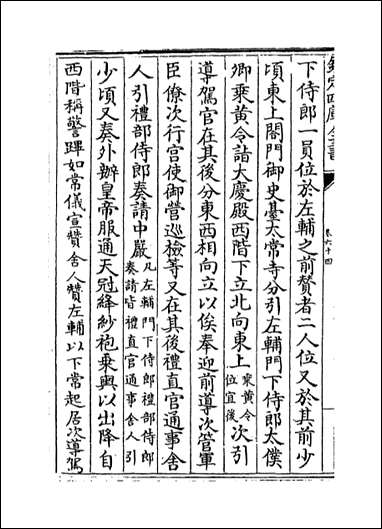 欽定四庫全書
卷六十四
下侍郎一員位於左輔之前贊者二人位又於其前少
頃東上閤門御史臺太常寺分引左輔門下侍郎太僕
卿乘黃令詣大慶殿西階下立北向東上乘黃令位宜後次引
導駕官在其後分東西相向立以俟奉迎前導次管軍
臣僚次行宮使御營巡檢等又在其後禮直官通事舍
人引禮部侍郎奏請中嚴凡左輔門下侍郎禮部侍郎奏請皆禮直官通事舍人引
少頃又奏外辦皇帝服通天冠絳紗袍乘輿以出降自
西階稱警蹕如常儀宣贊舍人贊左輔以下常起居次導駕